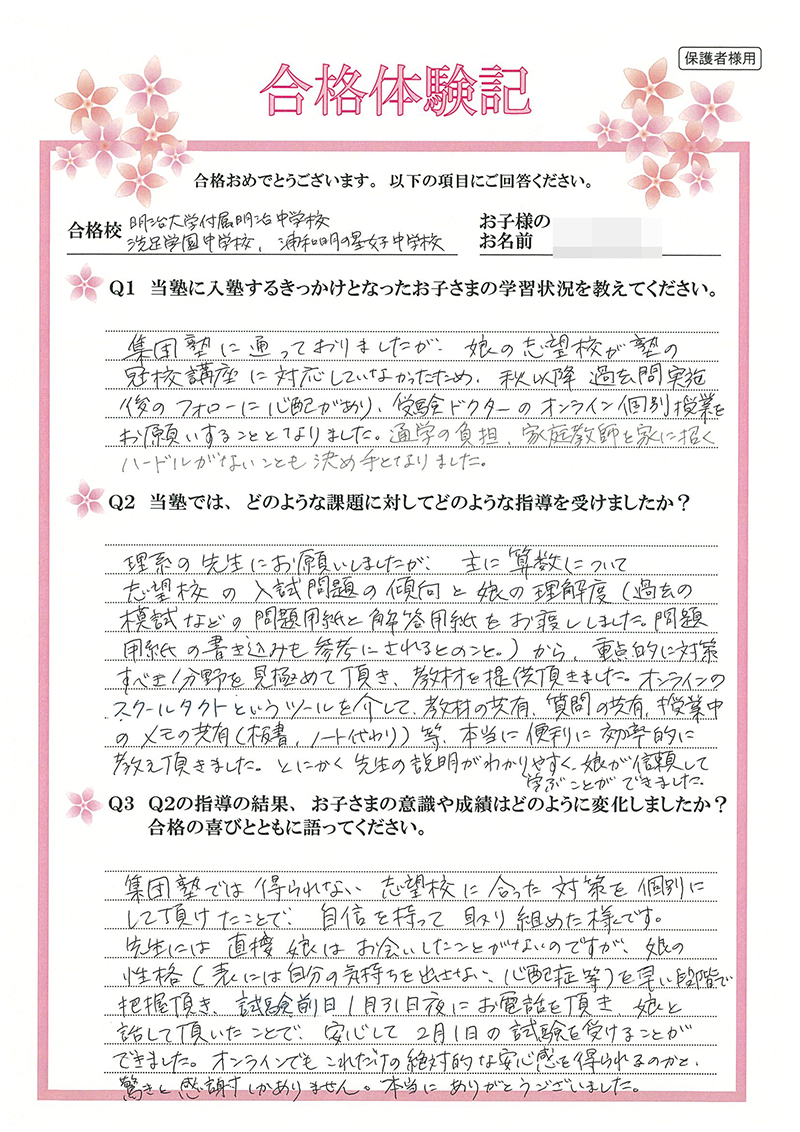 保護者様用
合格体験記
合格おめでとうございます。以下の項目にご回答ください。
合格校 明治大学付属明治中学校
洗足学園中学校、浦和明の星女子中学校
お子様の
お名前
Q1 当塾に入塾するきっかけとなったお子さまの学習状況を教えてください。
集団塾に通っておりましたが、娘の志望校が塾の
冠校講座に対応していなかったため、秋以降過去問実施
後のフォローに心配があり、受験ドクターのオンライン個別授業を
お願いすることとなりました。通学の負担、家庭教師を家に招く
ハードルがないことも決め手となりました。
Q2 当塾では、どのような課題に対してどのような指導を受けましたか？
理系の先生にお願いしましたが、主に算数について
志望校の入試問題の傾向と娘の理解度（過去の
模試などの問題用紙と解答用紙をお渡ししました。問題
用紙の書き込みも参考にされるとのこと。）から、重点的に対策
すべき分野を見極めて頂き、教材を提供頂きました。オンラインの
スクールタクトというツールを介して、教材の共有、質問の共有、授業中
のメモの共有（板書、ノート代わり）等、本当に便利に効率的に
教え頂きました。とにかく先生の説明がわかりやすく、娘が信頼して
学ぶことができました。
Q3 Q2の指導の結果、お子さまの意識や成績はどのように変化しましたか？
合格の喜びとともに語ってください。
集団塾では得られない志望校に合った対策を個別に
して頂けたことで、自信を持って取り組めた様です。
先生には直接娘はお会いしたことがないのですが、娘の
性格（表には自分の気持ちを出せない、心配症等）を早い段階で
把握頂き、試験前日1月31日夜にお電話を頂き、娘と
話して頂いたことで、安心して2月1日の試験を受けることが
できました。オンラインでもこれだけの絶対的な安心感を得られるのかと、
驚きと感謝しかありません。本当にありがとうございました。